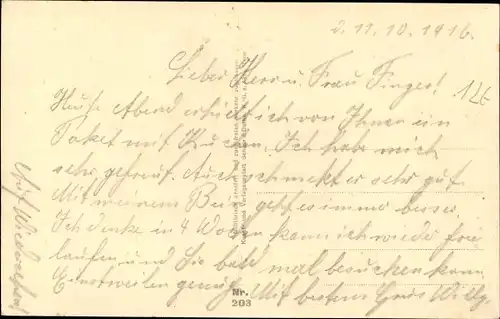 d. 11.10.1916.
Lieber Herr u. Frau Finger!
126
Heute Abend erhielt ich von Ihnen ein
Paket mit Kuchen. Ich habe mich
sehr gefreut. Auch schmekt er sehr gut.
Mit meinem Bein geht es immer besser.
Ich denke in 4 Wochen kann ich wieder frei
laufen und Sie bald mal besuchen kann.
Einstweilen genug. Mit bestem Grus Willy.
Auf Wiedersehen
Nr.
203